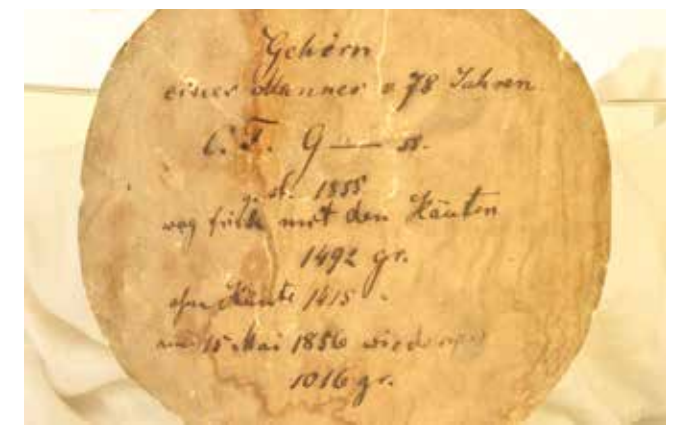 Gehirn
eines Mannes v 78 Jahren
C. F. G — ss.
1855
wog frisch mit den Häuten
1492 gr.
ohne Häute 1415 -
am 15 Mai 1856
1016 gr.